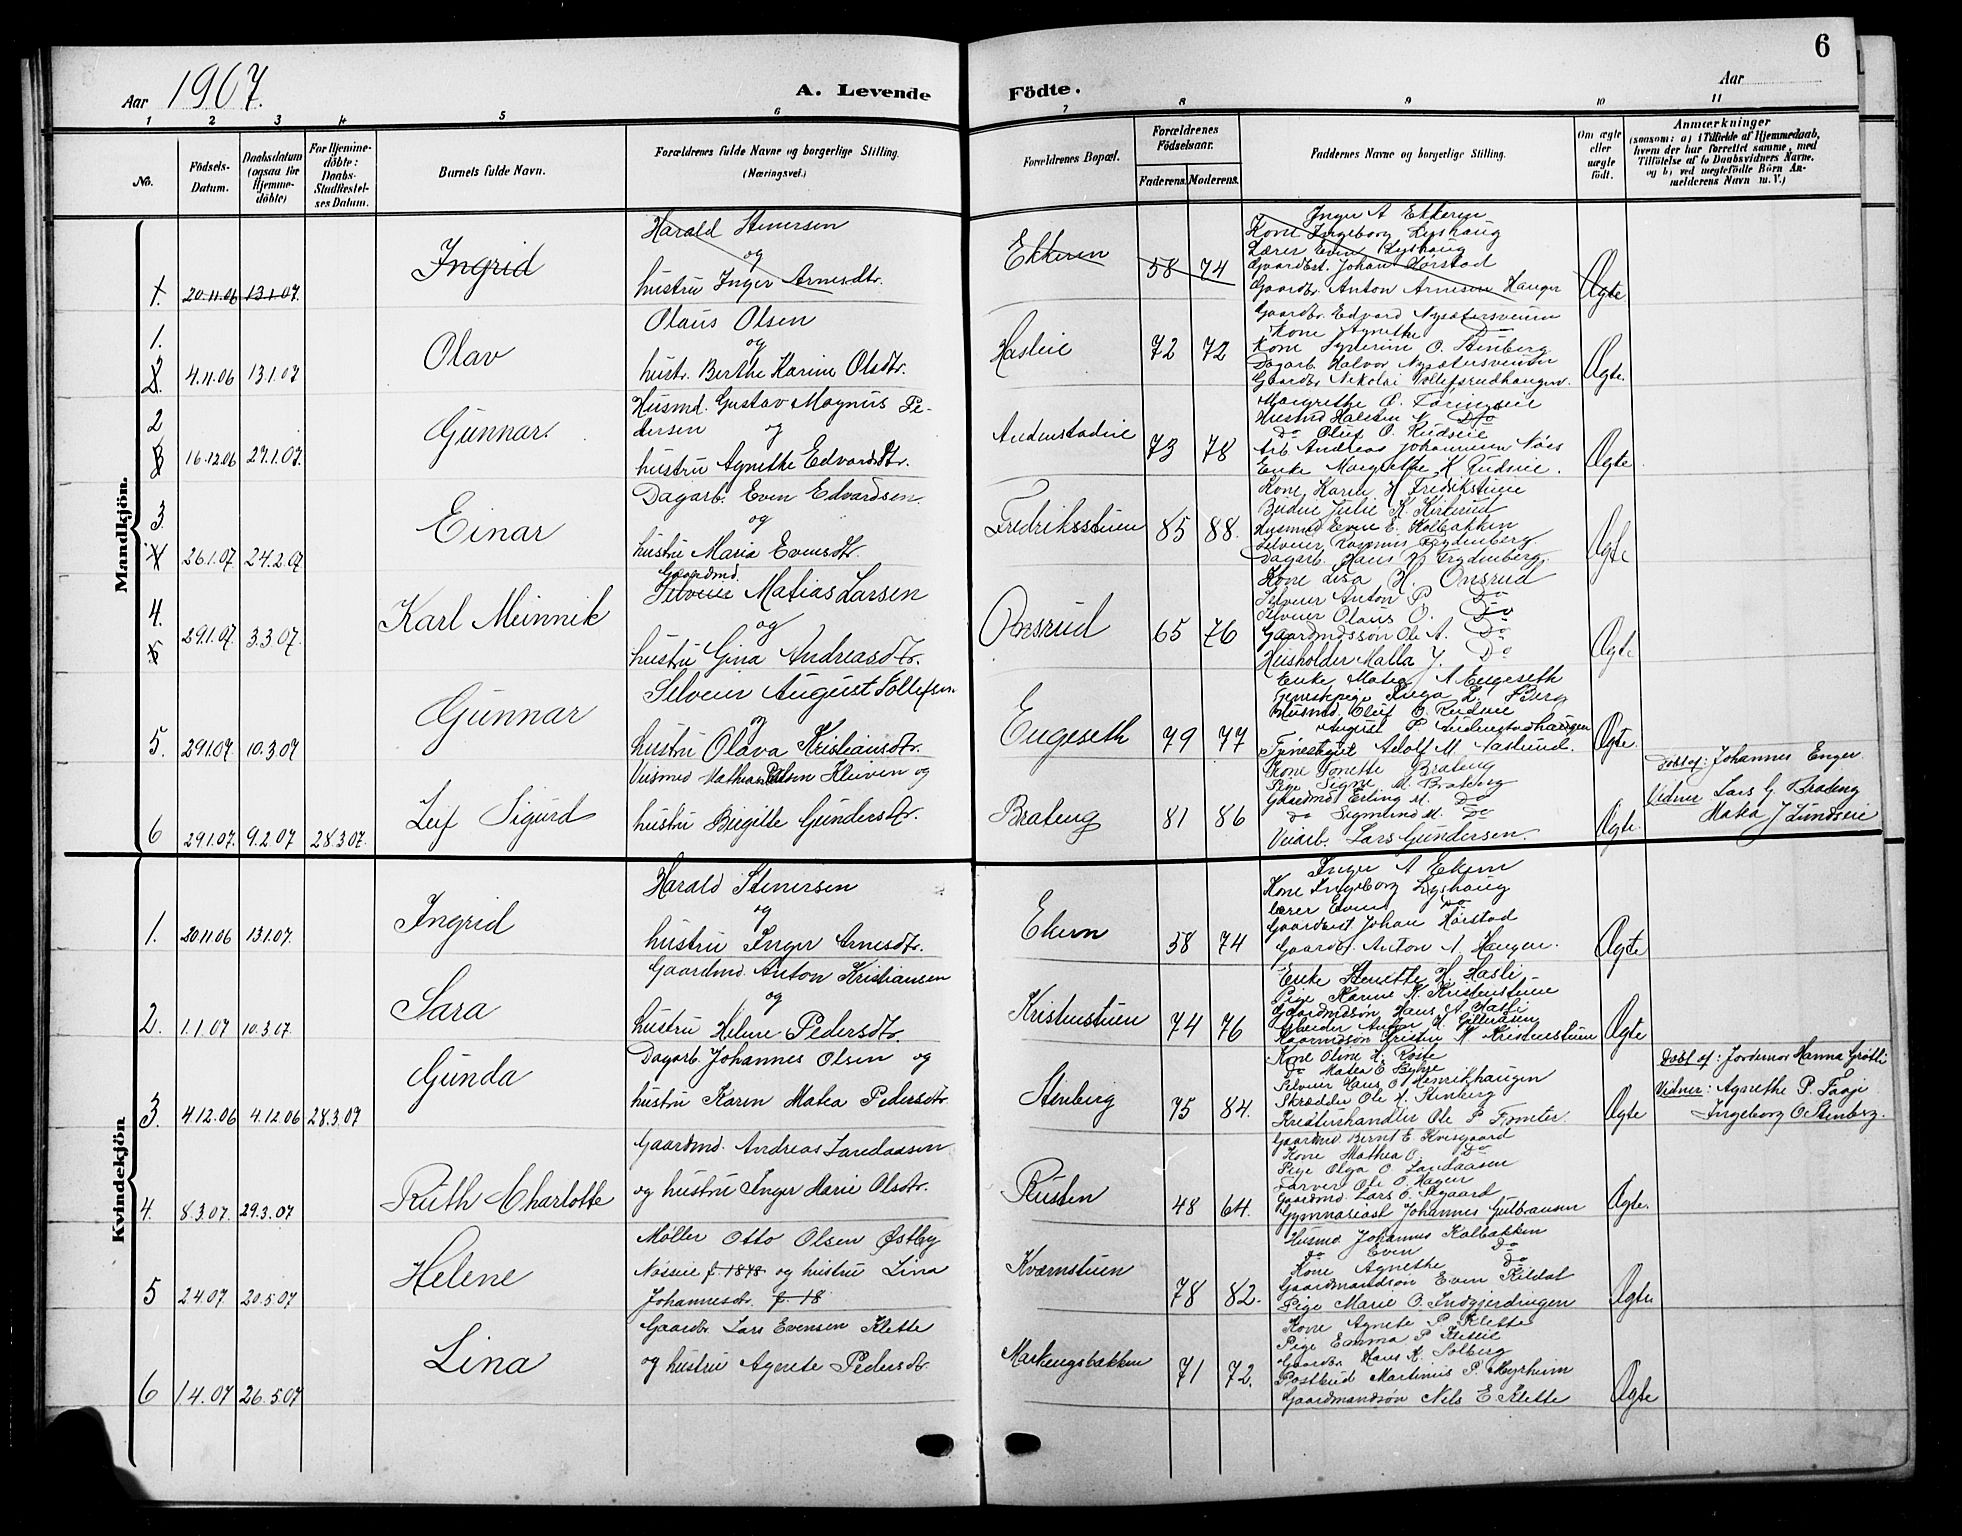 6
Aar 1907.
A. Levende Födte.
Aar
1 2 3 4 5 6 7 8 9 10 11
No.
Födsels-Datum.
Daabsdatum (ogsaa for Hjemmedöbte)
For Hjemmedöbte: Daabs-Stadfæstelses Datum.
Barnets fulde Navn.
Forældrenes fulde Navne og borgerlige Stilling. (Næringsvei.)
Forældrenes Bopæl.
Forældrenes Födselsaar.
Faderens. Moderens.
Faddernes Navne og borgerlige Stilling.
Om ægte eller uægte födt.
Anmærkninger
(saasom: a) i Tilfælde af Hjemmedaab, hvem der har forrettet samme, med Tilföielse af to Daabsvidners Navne. og b) ved uægtefödte Börn Anmelderens Navn m. V.)
Mandkjön.
1. 20.11.06 13.1.07. Ingrid
Harald Stenersen
og
hustru Inger Arnesdtr.
Ekkeren 58 74
Inger A Ekkeren
Kone Ingeborg Lyshaug
Lærer Even Lyshaug
Gaardbest. Johan Hörstad
Gaardbr. Anton Arnesen Haugen
Ægte
1. 2 4.11.06 13.1.07 Olav
Olaus Olsen
og
hustr. Berthe Karine Olsdtr.
Hasleie 72 72
Gaardbr. Edvard Nysætersveen
Kone Agnethe Do
Kone Syverine O. Stenberg
Dagarb. Halvor Nysætersveen
Gaardbr. Nikolai Tollefsrudhaugen.
Ægte.
2 3 16.12.06 27.1.07. Gunnar.
Husmd. Gustav Magnus Pe-
dersen og
hustru Agnethe Edvardsdtr.
73 78
Margrethe O.
Husmd Halsten K Do
Do Oluf O. Rudseie
Arb Andreas Johannesen Næss
Enke Margrethe K Rudseie.
Ægte
3. 4 26.1.07 24.2.07 Einar
Dagarb. Even Edvardsen
og
hustru Maria Evensdtr.
Fredriksstuen 85 88.
Kone Karen H Fredrikstuen
Budeie Julie K. Kirkerud
Husmd Even E. Kolbakken
Selveier Rasmus Frydenberg
Dagarb. Hans H Frydenberg.
Ægte
4. 5 29.1.07. 3.3.07. Karl Meinnik
Gaardmd.
Selveier Matias Larsen
og
hustru Gina Andreasdtr.
Onsrud 65 76
Kone Lisa H. Onsrud
Selveier Anton P Do
Selveier Olaus O. Do
Gaardmdssön Ole A. Do
Husholder Malla J. Do
Ægte
5. 29.1.07. 10.3.07 Gunnar
Selveier August Tollefsen
og
hustru Olava Kristiansdtr.
Engeseth 79 77
Enke Matea A Engeseth
Tjenestepige Inga L. Berg
Husmd. Oluf O. Rudseie
August P.
Tjenestegut Adolf M. Aaslund.
Ægte.
6 29.1.07. 9.2.07 28.3.07. Leif Sigurd
Veismed Mathias Olsen Kleiven og
hustru Birgitte Gundersdtr.
Brateng 81 86
Kone Tonette Brateng
Pige Signe M. Brateng
Gaardmd Erling M. Do
Do Sigmund M. Do
Veiarb. Lars Gundersen
Ægte.
Döbt af: Johannes Enger.
Vidner Lars G. Brateng
Matea J Lundseie
Kvindekjön
1. 20.11.06 13.1.07. Ingrid
Harald Stenersen
og
hustru Inger Arnesdtr.
Ekern 58 74
Inger A Ekern
Kone Ingeborg Lyshaug
Lærer Even Do
Gaardbest Johan Hörstad
Gaardb. Anton A Haugen.
Ægte
2. 1.1.07 10.3.07. Sara
Gaardmd. Anton Kristiansen
og
hustru Helene Pedersdtr.
Kristenstuen 74 76
Enke Stenette H. Hasli
Pige Karine K. Kristenstuen
Gaardmdsön Hans A Hasli
Arbeider Anton H. Gilleraasen
Gaardmdsön Kristen K Kristenstuen
Ægte
3. 4.12.06 4.12.06 28.3.07 Gunda
Dagarb. Johannes Olsen og
hustru Karen Matea Pedersdtr.
Stenberg 75 84.
Kone Oline H. Roste
Do Matea E Byhre
Selveier Hans O Henrikhaugen
Skrædder Ole H. Stenberg
Kreaturshandler Ole P Tömter.
Ægte
Döbt af: Jordemor Hanna Grötli
Vidner: Agnethe P. Faaje
Ingeborg O Stenberg.
4. 8.3.07. 29.3.07 Ruth Charlotte
Gaardmd. Andreas Landaasen
og hustru Inger Marie Olsdtr.
Rusten 48 64.
Gaardmd Bernt E. Kvisgaard
Kone Mathea O. Do
Pige Olga O. Landaasen
Farver Ole O. Hagen
Gaardmd. Lars O. Segaard
Gymnasiast Johannes Gulbransen
Ægte.
5 2.4.07 20.5.07 Helene
Möller Otto Olsen Østby
Næsseie f. 1878 og hustru Lina
Johannesdr. f. 18
Kværnstuen 78 82.
Husmd Johannes Kolbakken
Do Even Do
Kone Agnethe Do
Gaardmandsön Even Kildal
Pige Marie O. Indgjerdingen
Ægte
6 1.4.07 26.5.07 Lina
Gaardbr. Lars Evensen Klette
og hustru Agnete Pedersdr.
Markengsbakken 71 72.
Kone Agnete P. Klette
Pige Emma P. Kletteie
Gaardbr. Hans K. Solberg
Postbud Martinius P. Myrheim
Gaardmandsön Nils E. Klette
Ægte